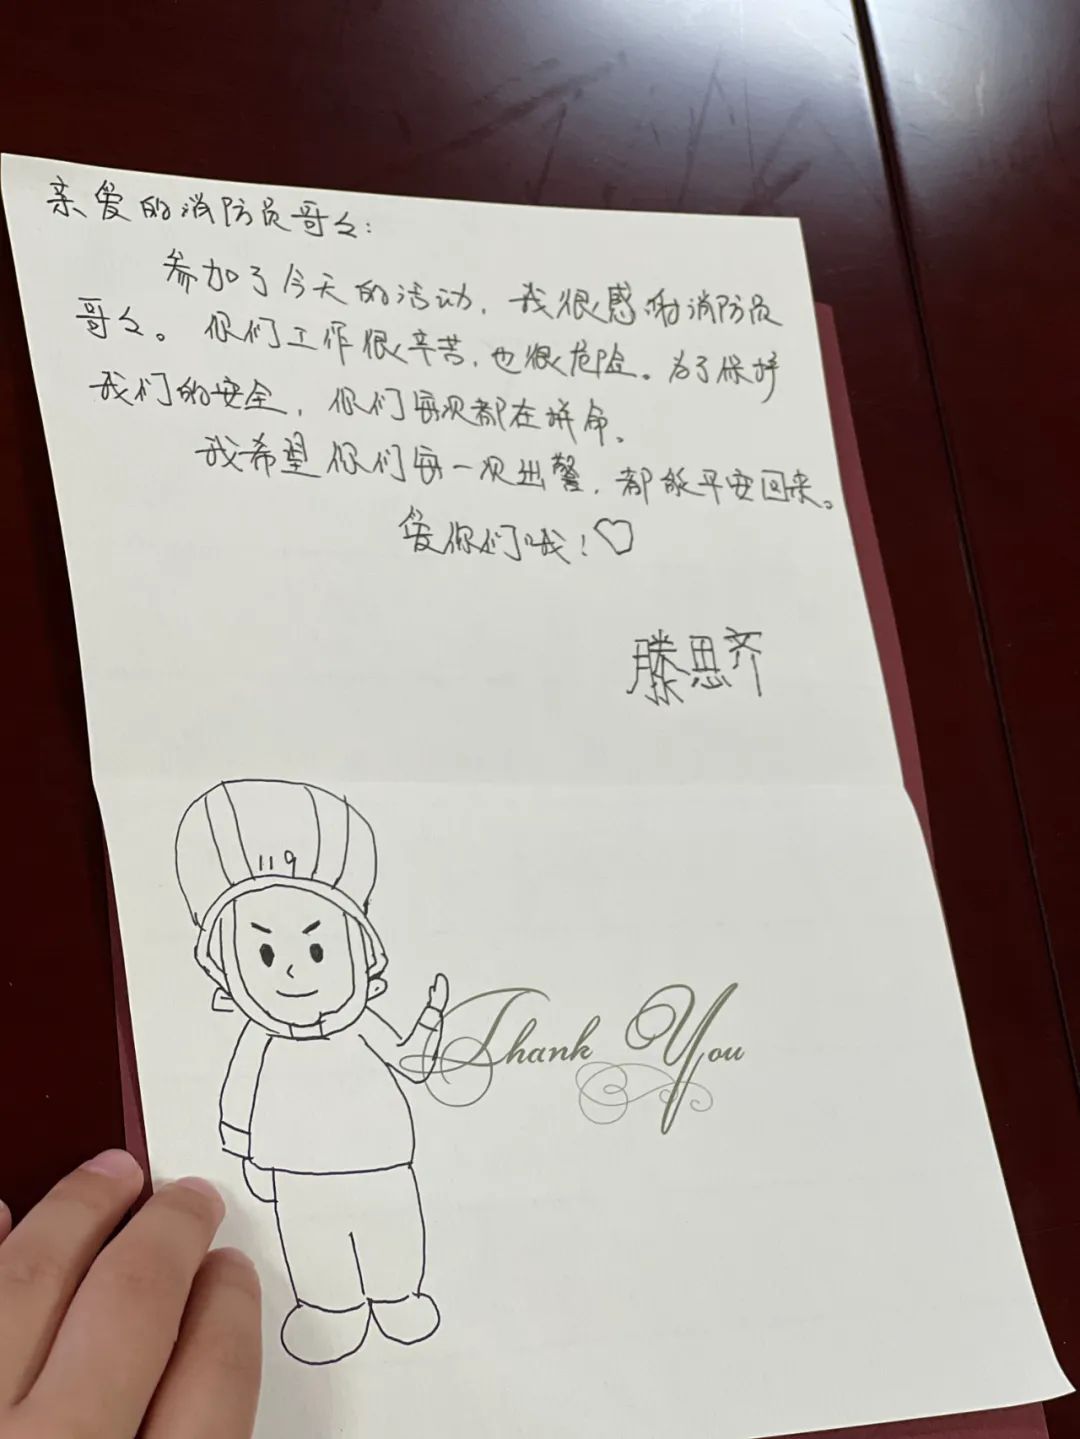 亲爱的消防员哥々:
参加了今天的活动，我很感谢消防员
哥々。你们工作很辛苦，也很危险。为了保护
我们的安全，你们每次都在拼命。
我希望你们每一次出警，都能平安回来。
爱你们哦！♡
滕思齐
119
Thank You